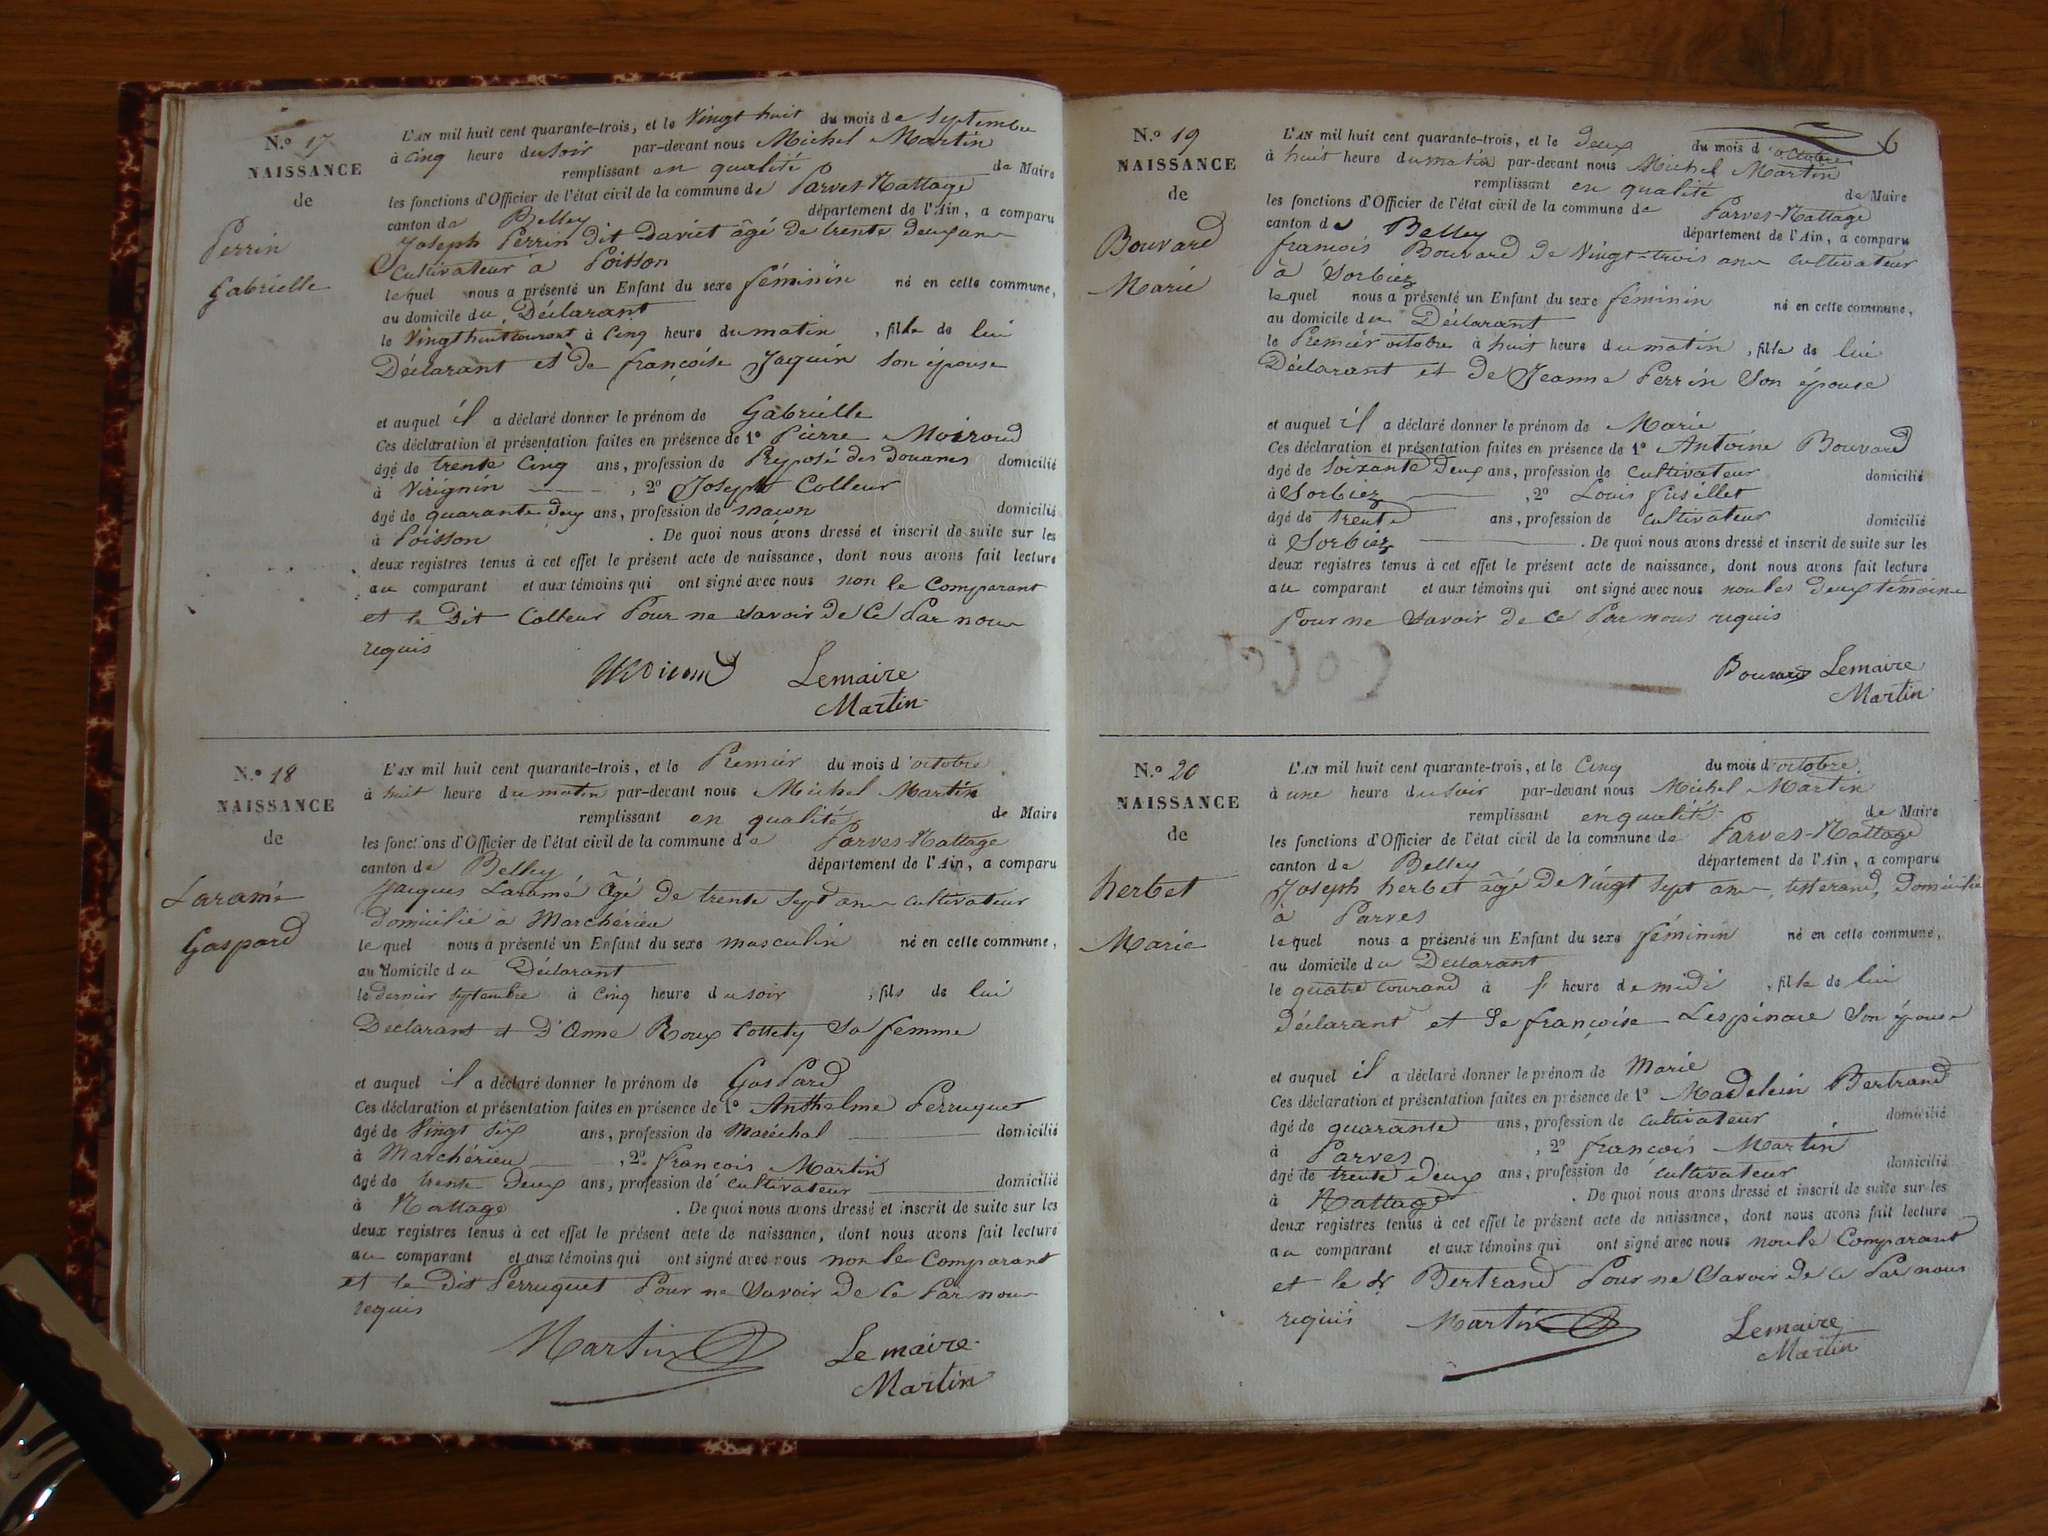 N.º 17
NAISSANCE
de
Perrin
Gabrielle
L'AN mil huit cent quarante-trois, et le Vingt huit du mois de Septembre
à Cinq heure du soir par-devant nous Michel Martin
remplissant en qualité de Maire
les fonctions d'Officier de l'état civil de la commune de Parves-Nattage
canton de Belley département de l'Ain, a comparu
Joseph Perrin dit Daviet âgé de trente deux ans
Cultivateur à Poisson
lequel nous a présenté un Enfant du sexe féminin né en cette commune,
au domicile du Déclarant
le Vingt huit courant à Cinq heure du matin, fille de lui
Déclarant et de françoise Jaquin son épouse
et auquel il a déclaré donner le prénom de Gabrielle
Ces déclaration et présentation faites en présence de 1º Pierre Moiroud
âgé de trente Cinq ans, profession de Preposé des douanes domicilié
à Virignin, 2º Joseph Colleur
âgé de quarante deux ans, profession de domicilié
à Poisson. De quoi nous avons dressé et inscrit de suite sur les
deux registres tenus à cet effet le présent acte de naissance, dont nous avons fait lecture
au comparant et aux témoins qui ont signé avec nous non le Comparant
et le Dit Colleur Pour ne savoir de Ce Par nous
requis
Lemaire
Martin
N.º 18
NAISSANCE
de
Laramé
Gaspard
L'AN mil huit cent quarante-trois, et le Premier du mois d'octobre
à huit heure du matin par-devant nous Michel Martin
remplissant en qualité de Maire
les fonctions d'Officier de l'état civil de la commune de Parves-Nattage
canton de Belley département de l'Ain, a comparu
Jacques Laramé âgé de trente sept ans cultivateur
Domicilié à Marchérieu
lequel nous a présenté un Enfant du sexe masculin né en cette commune,
au domicile du Déclarant
le dernier septembre à Cinq heure du soir, fils de lui
Déclarant et D'Anne Roux sa femme
et auquel il a déclaré donner le prénom de GasPard
Ces déclaration et présentation faites en présence de 1º Anthelme Perruquet
âgé de Vingt six ans, profession de Maréchal domicilié
à Marchérieu, 2º françois Martin
âgé de trente deux ans, profession de cultivateur domicilié
à Nattage. De quoi nous avons dressé et inscrit de suite sur les
deux registres tenus à cet effet le présent acte de naissance, dont nous avons fait lecture
au comparant et aux témoins qui ont signé avec nous non le Comparant
et le Dit Perruquet Pour ne savoir de Ce Par nous
requis
Martin Lemaire
Martin
6
N.º 19
NAISSANCE
de
Bouvard
Marie
L'AN mil huit cent quarante-trois, et le deux du mois d'octobre
à huit heure du matin par-devant nous Michel Martin
remplissant en qualité de Maire
les fonctions d'Officier de l'état civil de la commune de Parves-Nattage
canton de Belley département de l'Ain, a comparu
françois Bouvard de Vingt-trois ans cultivateur
à Sorbiez
lequel nous a présenté un Enfant du sexe féminin né en cette commune,
au domicile du Déclarant
le Premier octobre à huit heure du matin, fille de lui
Déclarant et de Jeanne Perrin Son épouse
et auquel il a déclaré donner le prénom de Marie
Ces déclaration et présentation faites en présence de 1º Antoine Bouvard
âgé de Soixante deux ans, profession de Cultivateur domicilié
à Sorbiez, 2º Louis fusellet
âgé de trente ans, profession de cultivateur domicilié
à Sorbiez. De quoi nous avons dressé et inscrit de suite sur les
deux registres tenus à cet effet le présent acte de naissance, dont nous avons fait lecture
au comparant et aux témoins qui ont signé avec nous non les deux témoins
Pour ne savoir de Ce Par nous requis
Bouvard Lemaire
Martin
N.º 20
NAISSANCE
de
herbet
Marie
L'AN mil huit cent quarante-trois, et le Cinq du mois d'octobre
à une heure du soir par-devant nous Michel Martin
remplissant en qualité de Maire
les fonctions d'Officier de l'état civil de la commune de Parves-Nattage
canton de Belley département de l'Ain, a comparu
Joseph herbet âgé de Vingt sept ans, tisserand, domicilié
à Parves
lequel nous a présenté un Enfant du sexe féminin né en cette commune,
au domicile du Déclarant
le quatre Courand à heure de midi, fille de lui
déclarant et de françoise Lespinare Son épouse
et auquel il a déclaré donner le prénom de Marie
Ces déclaration et présentation faites en présence de 1º Madelein Bertrand
âgé de quarante ans, profession de cultivateur domicilié
à Parves, 2º françois Martin
âgé de trente deux ans, profession de cultivateur domicilié
à Nattage. De quoi nous avons dressé et inscrit de suite sur les
deux registres tenus à cet effet le présent acte de naissance, dont nous avons fait lecture
au comparant et aux témoins qui ont signé avec nous non le Comparant
et le dt Bertrand Pour ne Savoir de Ce Par nous
requis Martin Lemaire
Martin